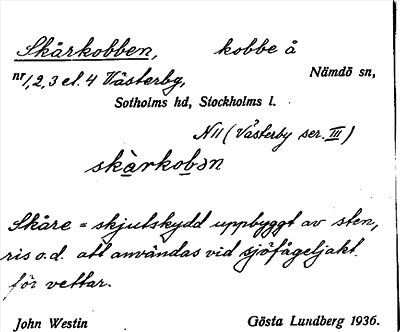 Skårkobben, kobbe å
nr 1, 2, 3 el. 4 Västerby, Nämdö sn,
Sotholms hd, Stockholms l.
N11 (Västerby ser. III)
skàrkobən
Skåre = skjutskydd uppbyggt av sten,
ris o.d. att användas vid sjöfågeljakt
för vettar.
John Westin Gösta Lundberg 1936.